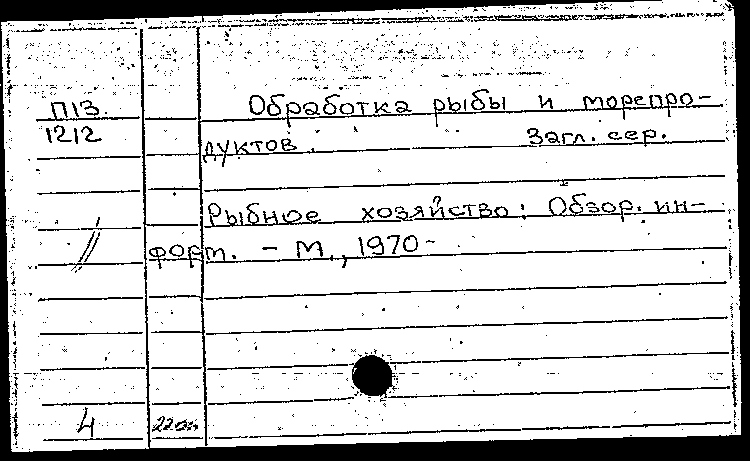 П13
1212
Обработка рыбы и морепро-
дуктов. Загл. сер.
Рыбное хозяйство: Обзор. ин-
форм. - М., 1970-
4